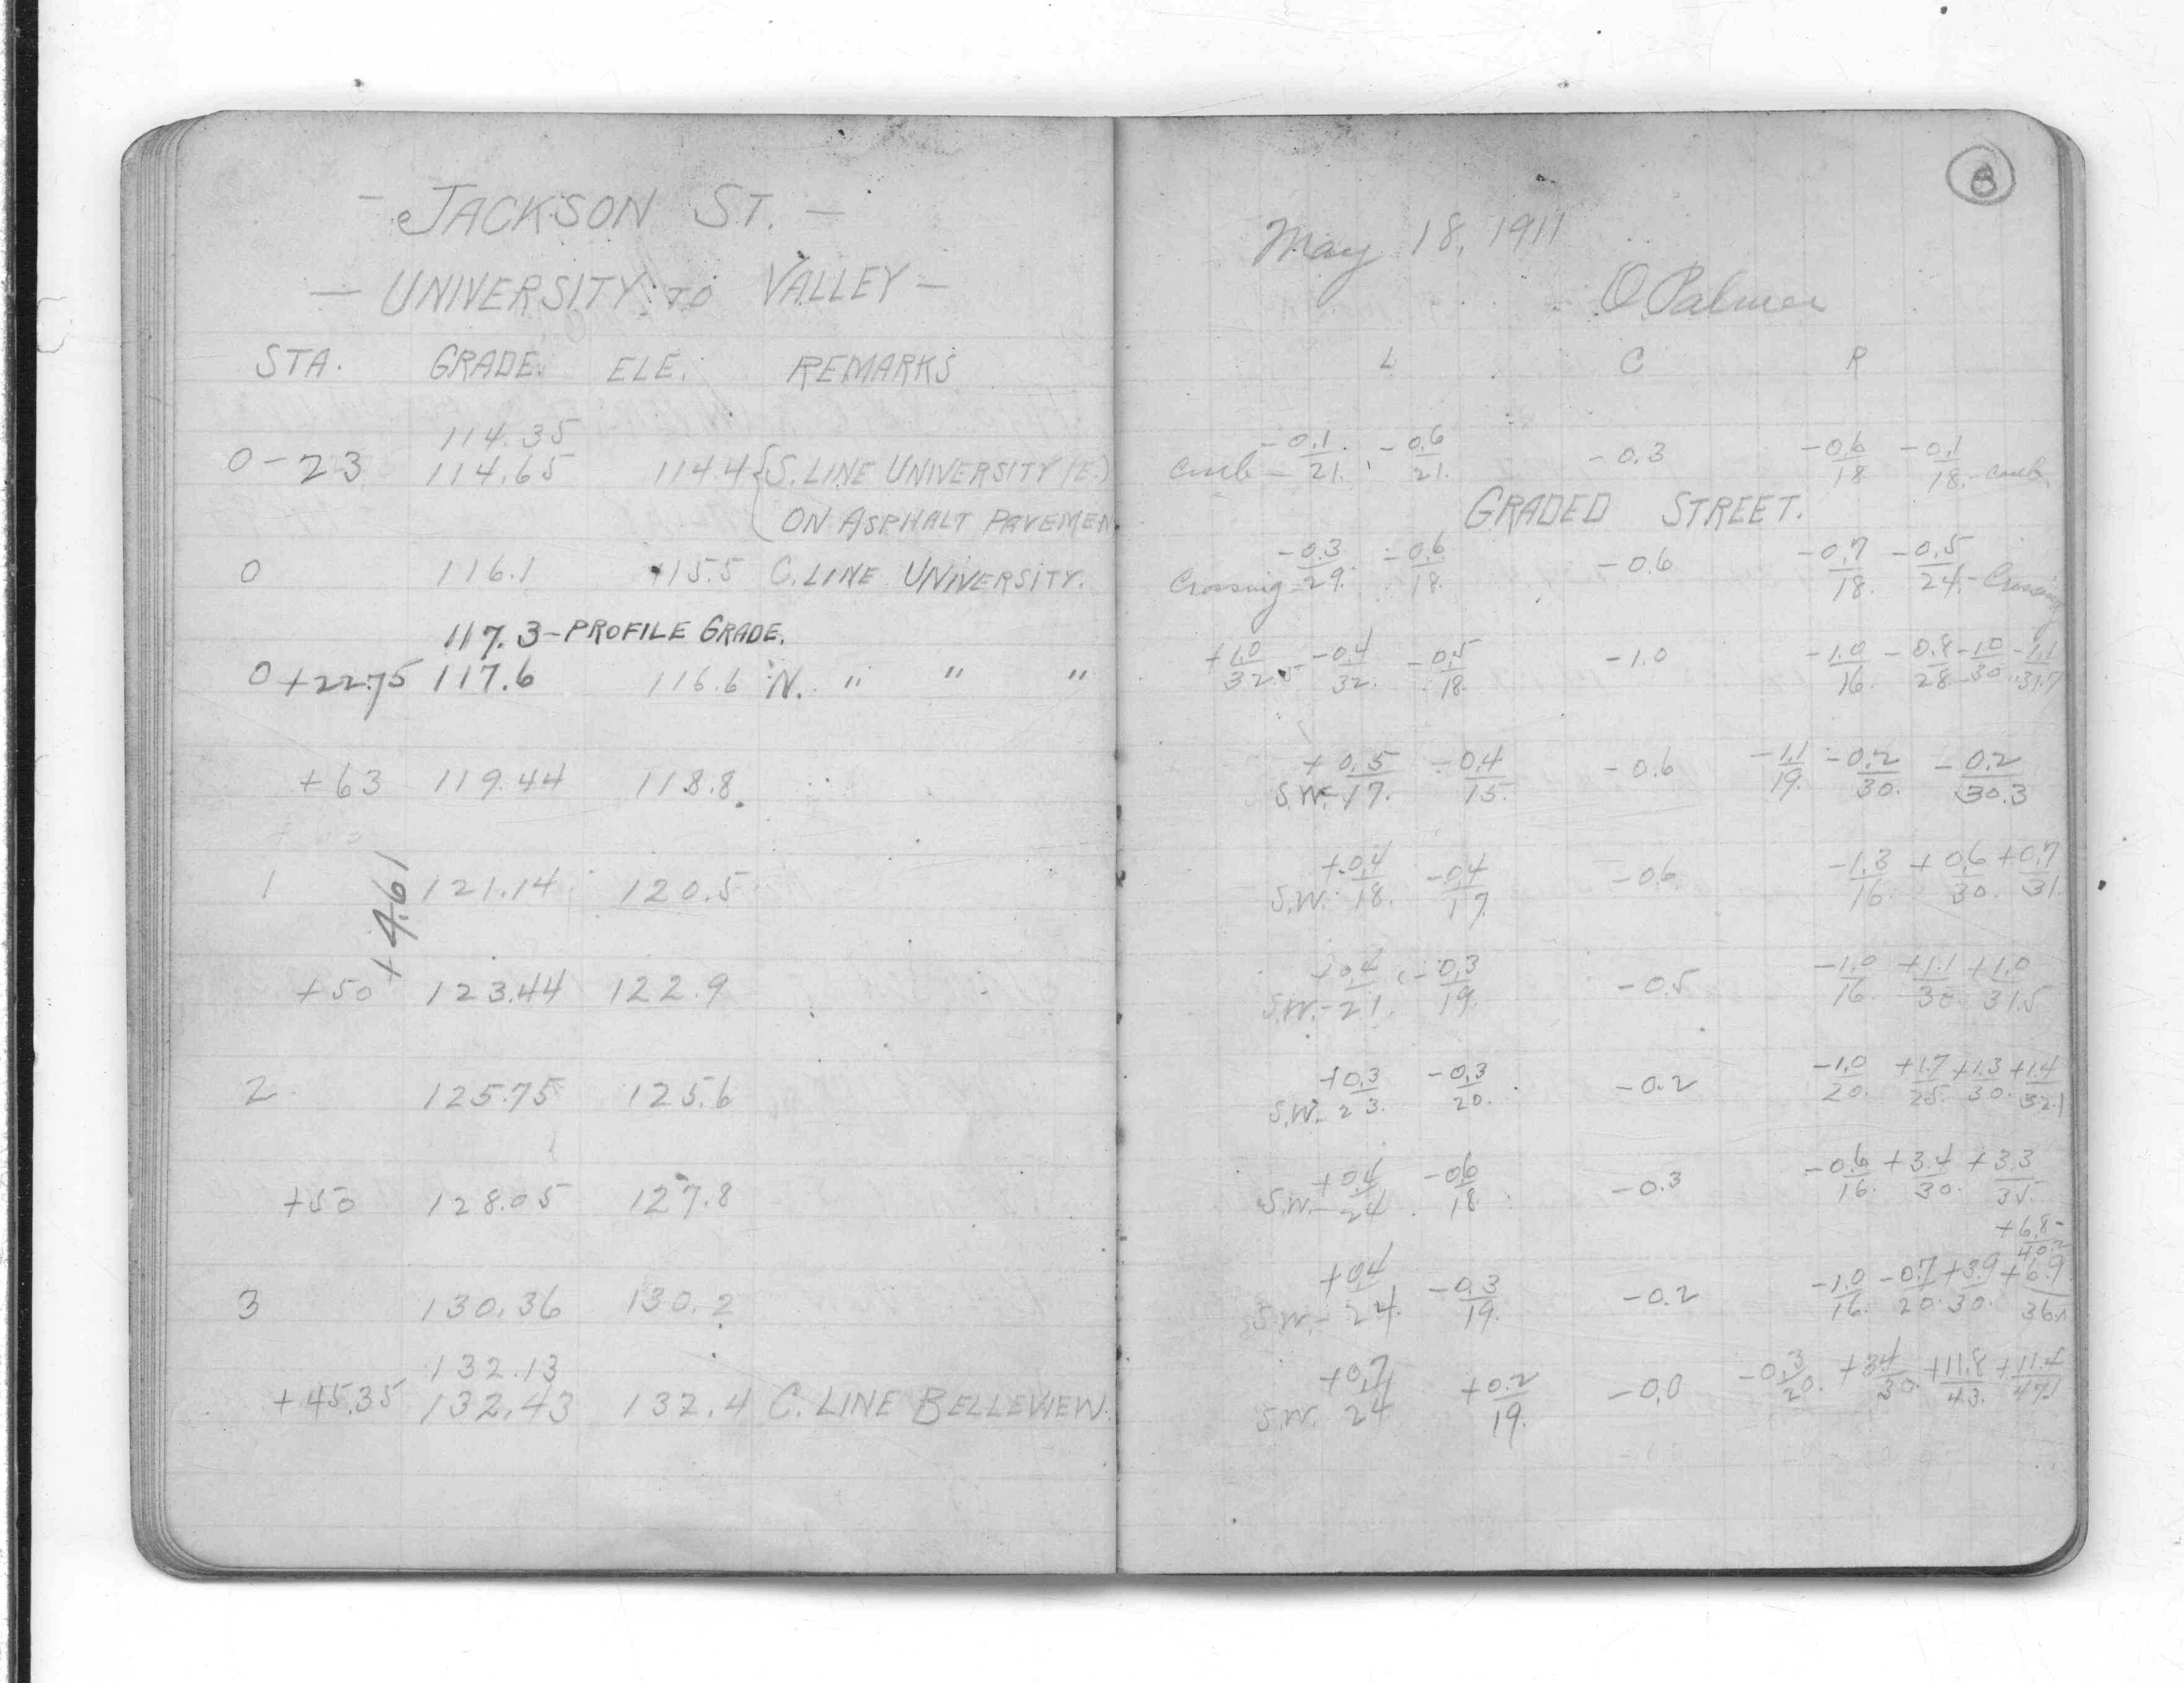 - JACKSON ST. -
- UNIVERSITY TO VALLEY -
STA. GRADE. ELE. REMARKS
114.35
0-23 114.65 114.4 { S. LINE UNIVERSITY (E.)
ON ASPHALT PAVEMEN
0 116.1 115.5 C. LINE UNIVERSITY.
117.3 - PROFILE GRADE.
0+22.75 117.6 116.6 N. " " "
+63 119.44 118.8
1 121.14 120.5
+4.61
+50 123.44 122.9
2 125.75 125.6
+50 128.05 127.8
3 130.36 130.2
132.13
+45.35 132.43 132.4 C. LINE BELLEVIEW.
8
May 18, 1911
O Palmer
L C R
curb - -0.1/21. -0.6/21. -0.3 -0.6/18 -0.1/18. - curb.
GRADED STREET.
Crossing - -0.3/29. -0.6/18. -0.6 -0.7/18. -0.5/24. - Crossing
+1.0/32.5 -0.4/32. -0.5/18. -1.0 -1.0/16. -0.8/28 -1.0/30 -1.1/31.7
S.W. - +0.5/17. -0.4/15. -0.6 -1.1/19. -0.2/30. -0.2/30.3
S.W. +0.4/18. -0.4/17. -0.6 -1.3/16. +0.6/30. +0.7/31.
S.W. - +0.4/21. -0.3/19. -0.5 -1.0/16. +1.1/30. +1.0/31.5
S.W. - +0.3/23. -0.3/20. -0.2 -1.0/20. +1.7/25. +1.3/30. +1.4/32.1
S.W. - +0.4/24 -0.6/18. -0.3 -0.6/16. +3.4/30. +3.3/35.
+6.8/40.2
S.W. - +0.4/24. -0.3/19. -0.2 -1.0/16. -0.7/20. +3.9/30. +6.9/36.
S.W. +0.7/24 +0.2/19. -0.0 -0.3/20. +3.4/30. +11.8/43. +11.4/47.1